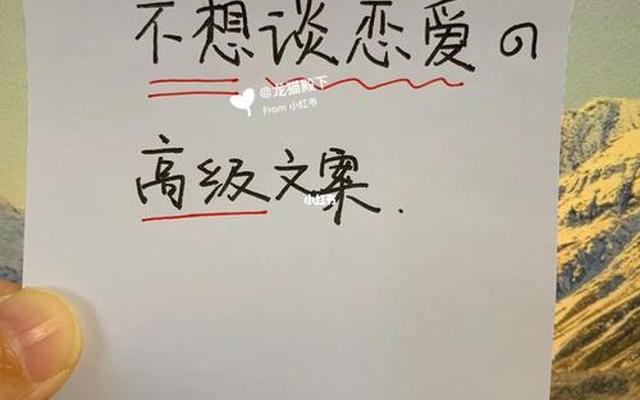 不想谈恋爱の
@龙猫殿下
From 小红书
高级文案.
小红书